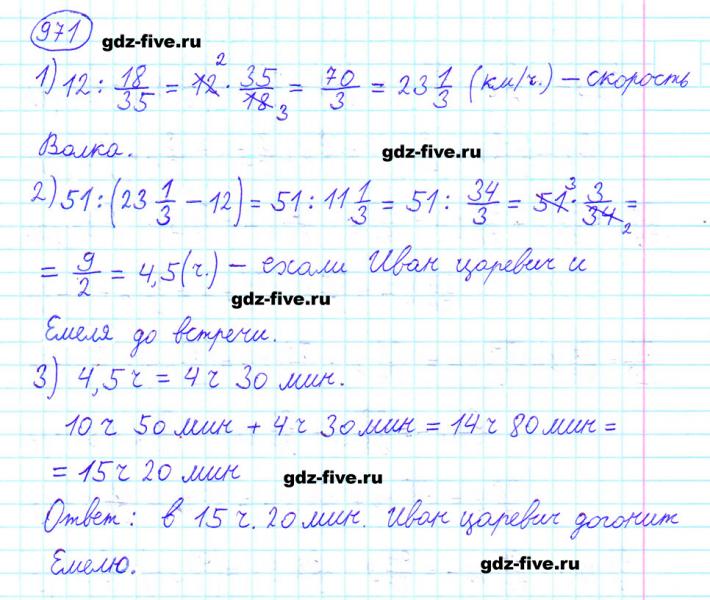 971
gdz-five.ru
1) 12 : 18/35 = 12 · 35/18 = 70/3 = 23 1/3 (км/ч.) – скорость
Волка.
gdz-five.ru
2) 51 : (23 1/3 – 12) = 51 : 11 1/3 = 51 : 34/3 = 51 · 3/34 =
= 9/2 = 4,5 (ч.) – ехали Иван царевич и
gdz-five.ru
Емеля до встречи.
3) 4,5 ч = 4 ч 30 мин.
10 ч 50 мин + 4 ч 30 мин = 14 ч 80 мин =
= 15 ч 20 мин
gdz-five.ru
Ответ: в 15 ч. 20 мин. Иван царевич догонит
Емелю.
gdz-five.ru